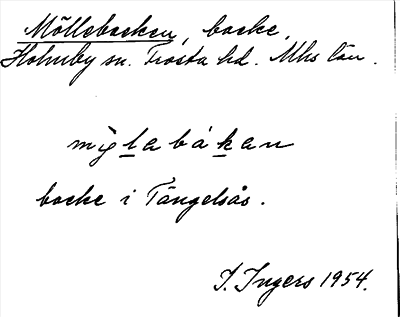 Möllebacken, backe,
Holmby sn. Frosta hd. Mhs län.
mø̀labákan
backe i Tängelsås.
I. Ingers 1954.